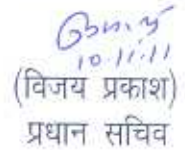 10.11.11
(विजय प्रकाश)
प्रधान सचिव